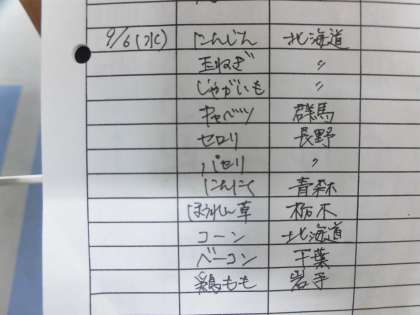 9/6(水) にんじん 北海道
玉ねぎ 〃
じゃがいも 〃
キャベツ 群馬
セロリ 長野
パセリ 〃
にんにく 青森
ほうれん草 栃木
コーン 北海道
ベーコン 千葉
鶏もも 岩手